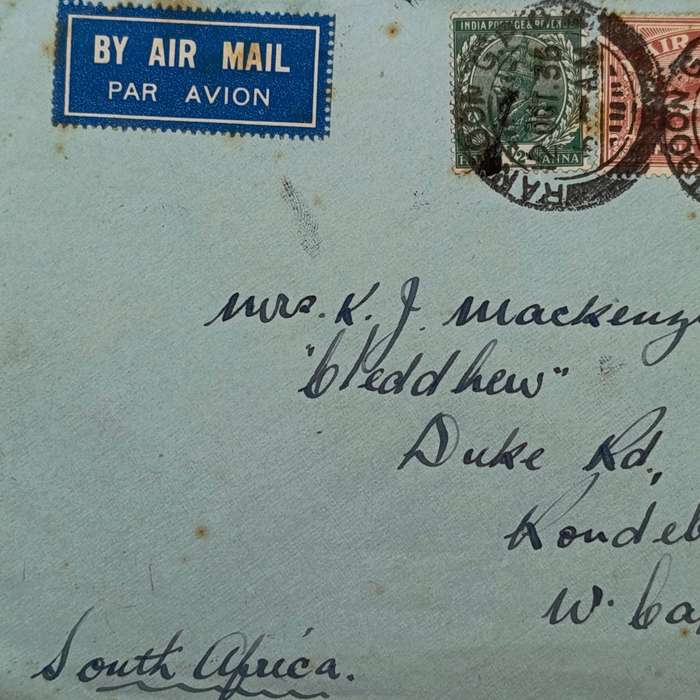 BY AIR MAIL
PAR AVION
INDIA POSTAGE & REVEN
ANNA
AIR
RANGOON G.
OCT 36
Mrs. K. J. Mackenz
"Cleddhew"
Duke Rd,
Rondeb
W. Ca
South Africa.